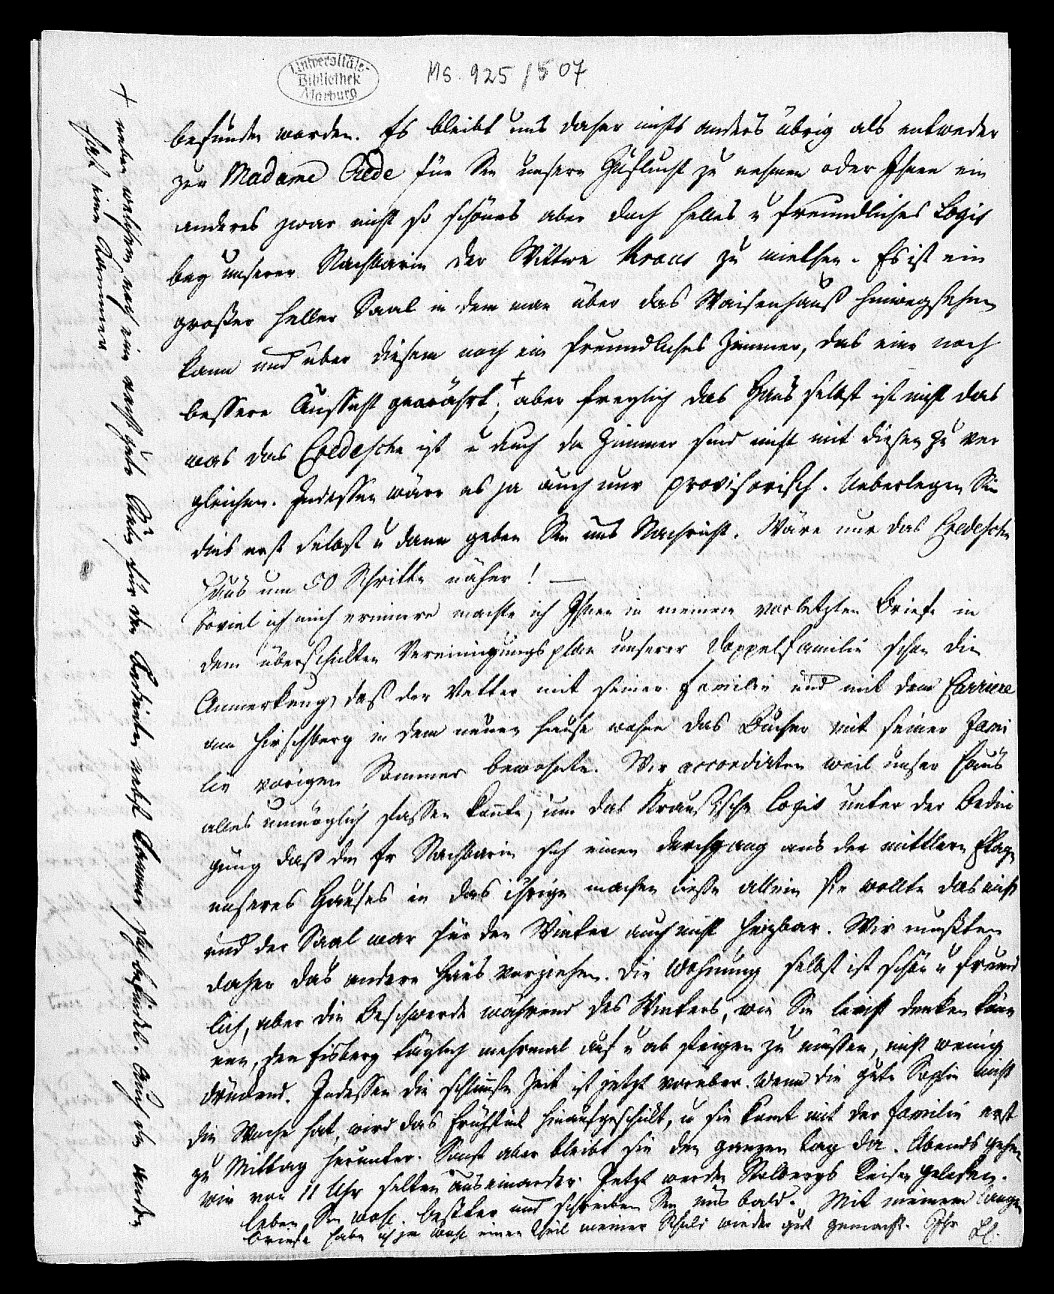 Universitäts-
Bibliothek
Marburg
Ms. 925/507
befunden worden. Es bleibt uns daher nichts anders übrig als entweder
zur Madame Crede für Sie unsere Zuflucht zu nehmen oder Ihnen ein
anderes zwar nicht so schönes aber doch helles u freundliches Logis
bey unserer Nachbarin der Wittwe Kraus zu miethen. Es ist ein
großer heller Saal in dem man über das Waisenhauß hinwegsehen
kann und über diesem noch ein freundliches Zimmer, das eine noch
bessere Aussicht gewährt; + aber freylich das Haus selbst ist nicht das
was das Credesche ist u auch die Zimmer sind nicht mit diesen zu ver
gleichen. Indessen wäre es ja auch nur provisorisch. Ueberlegen Sie
dies erst selbst u dann geben Sie uns Nachricht. Wäre nur das Credesche
Haus um 50 Schritte näher! —
Soviel ich mich erinnere machte ich Ihnen in meinem vorletzten Briefe in
dem überschickten Vereinigungsplan unserer Doppelfamilie schon die
Anmerkung, daß der Vetter mit seiner Familie und mit dem Carriere
am Hirschberg in dem neuen Hause wohne das Bucher mit seiner Fami
lie vorigen Sommer bewohnte. Wir accordirten weil unser Haus
alles unmöglich fassen konnte, um das Kraussische Logis unter der Bedin
gung daß die Fr Nachbarin sich einen Durchgang aus der mittlern Etage
unseres Hauses in das ihrige machen ließe allein sie wollte das nicht
und der Saal war für den Winter auch nicht heizbar. Wir mußten
daher das andere Haus vorziehen. Die Wohnung selbst ist schön u freund
lich, aber die Beschwerde während des Winters, wie Sie leicht denken kön
nen, den Eisberg täglich mehrmal auf u ab steigen zu müssen, nicht wenig
drückend. Indessen die schlimste Zeit ist jetzt vorüber. Wenn die gute Sophie nicht
die Woche hat, wird das Frühstück hinaufgeschickt, u sie komt mit der Familie erst
zu Mittag herunter. Sonst aber bleibt sie den ganzen Tag da. Abends gehen
wir vor 11 Uhr selten auseinander. Jetzt werden Stolbergs Reisen gelesen.
Leben Sie wohl. Bestter und schreiben Sie uns bald. Mit meinem langen
Briefe habe ich ja wohl einen Theil meiner Schuld wieder gut gemacht. Ihr
+ neben welchem noch eine recht gute Stube für den Bedienten nebst Kammer sich befindet. Auch
fast eine Kammer